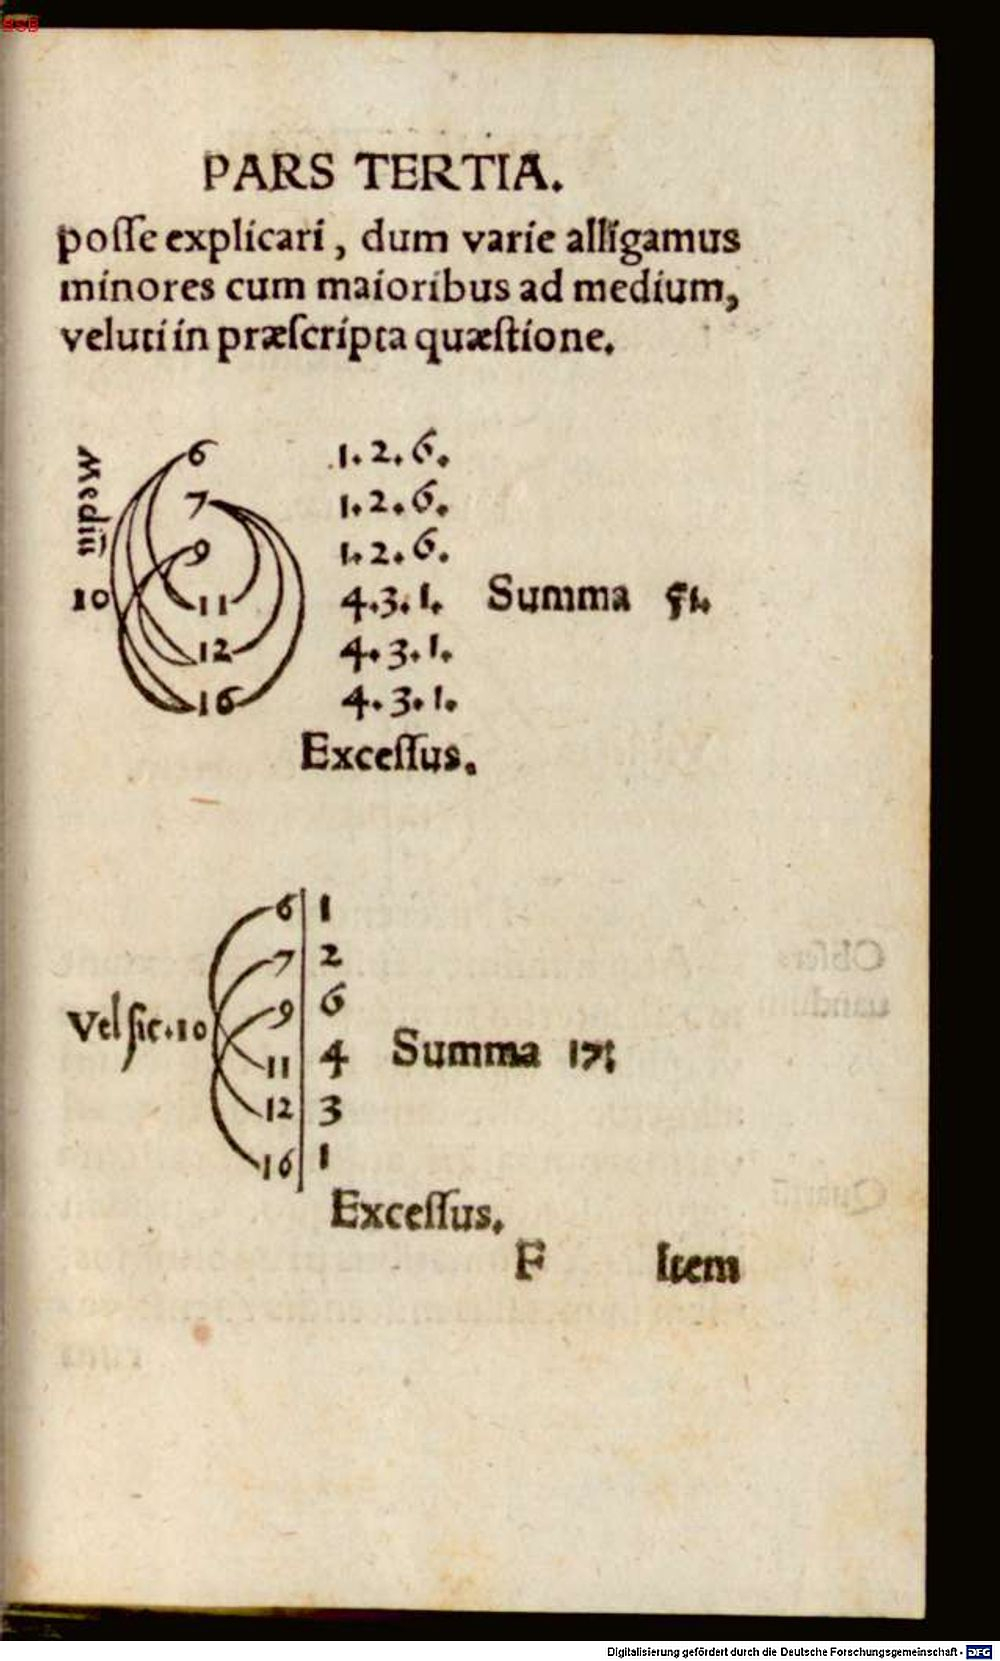 BSB
PARS TERTIA.
poſſe explicari, dum varie alligamus
minores cum maioribus ad medium,
veluti in præſcripta quæſtione.
Mediū
6 1. 2. 6.
7 1. 2. 6.
9 1. 2. 6.
10 11 4. 3. 1. Summa 51.
12 4. 3. 1.
16 4. 3. 1.
Exceſſus.
6 1
7 2
9 6
Vel ſic. 10 11 4 Summa 17;
12 3
16 1
Exceſſus.
F Item
Digitalisierung gefördert durch die Deutsche Forschungsgemeinschaft - DFG